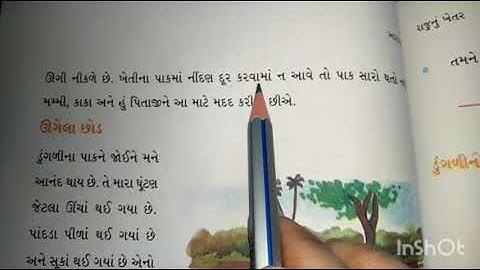 ઊગી નીકળે છે. ખેતીના પાકમાં નીંદણ દૂર કરવામાં ન આવે તો પાક સારો થતો
મમ્મી, કાકા અને હું પિતાજીને આ માટે મદદ કરી છીએ.
ઊગેલા છોડ
ડુંગળીના પાકને જોઈને મને
આનંદ થાય છે. તે મારા ઘૂંટણ
જેટલા ઊંચાં થઈ ગયા છે.
પાંદડા પીળાં થઈ ગયાં છે
અને સુકાં થઈ ગયાં છે એનો
રાજુનું ખેતર
તમને
ડુંગળીની
InShOt